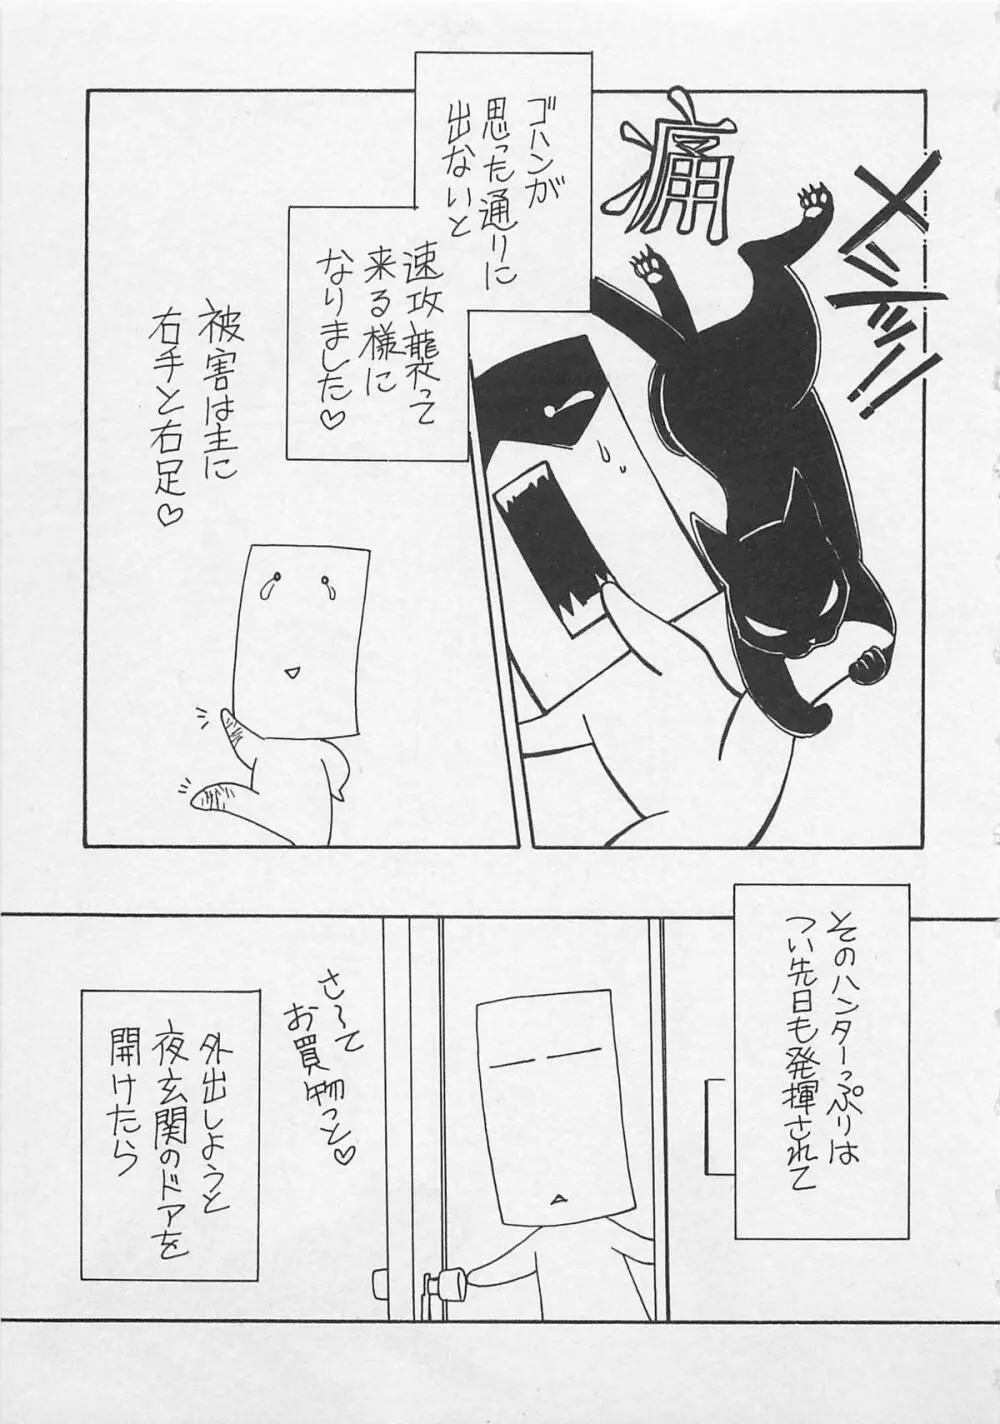 メシ!!
痛
ゴハンが
思った通りに
出ないと
速攻襲って
来る様に
なりました♡
被害は主に
右手と右足♡
そのハンターっぷりは
つい先日も発揮されて
さ〜て
お買物っと♡
外出しようと
夜玄関のドアを
開けたら